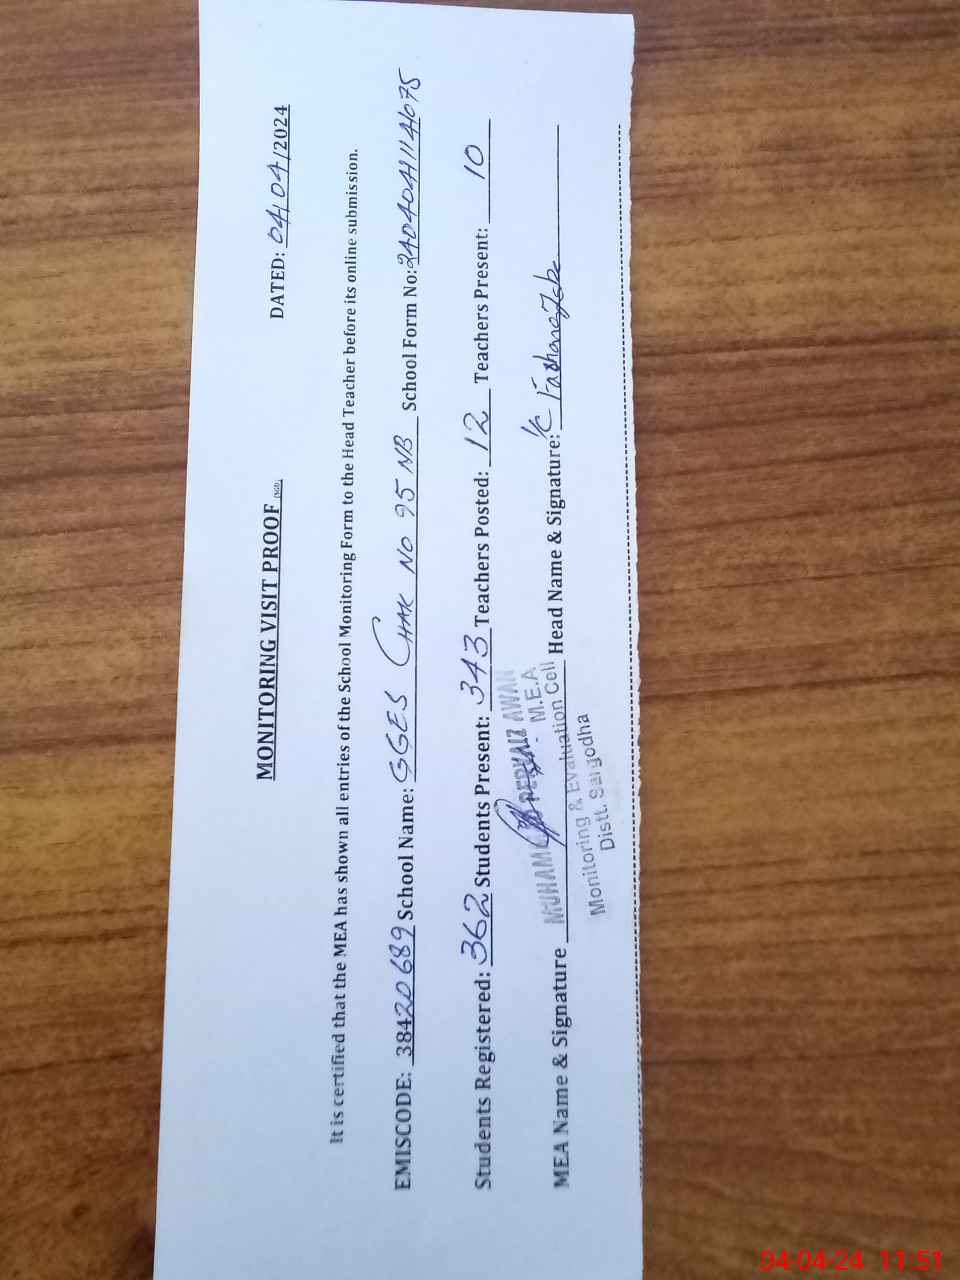 MONITORING VISIT PROOF (SGD)
DATED: 04/04/2024
It is certified that the MEA has shown all entries of the School Monitoring Form to the Head Teacher before its online submission.
EMISCODE: 38420689 School Name: GGES CHAK NO 95 NB School Form No:
Students Registered: 362 Students Present: 343 Teachers Posted: 12 Teachers Present: 10
MEA Name & Signature Head Name & Signature: I/C
AWAN
M.E.A
Monitoring & Evaluation Cell
Distt. Sargodha
04-04-24 11:51